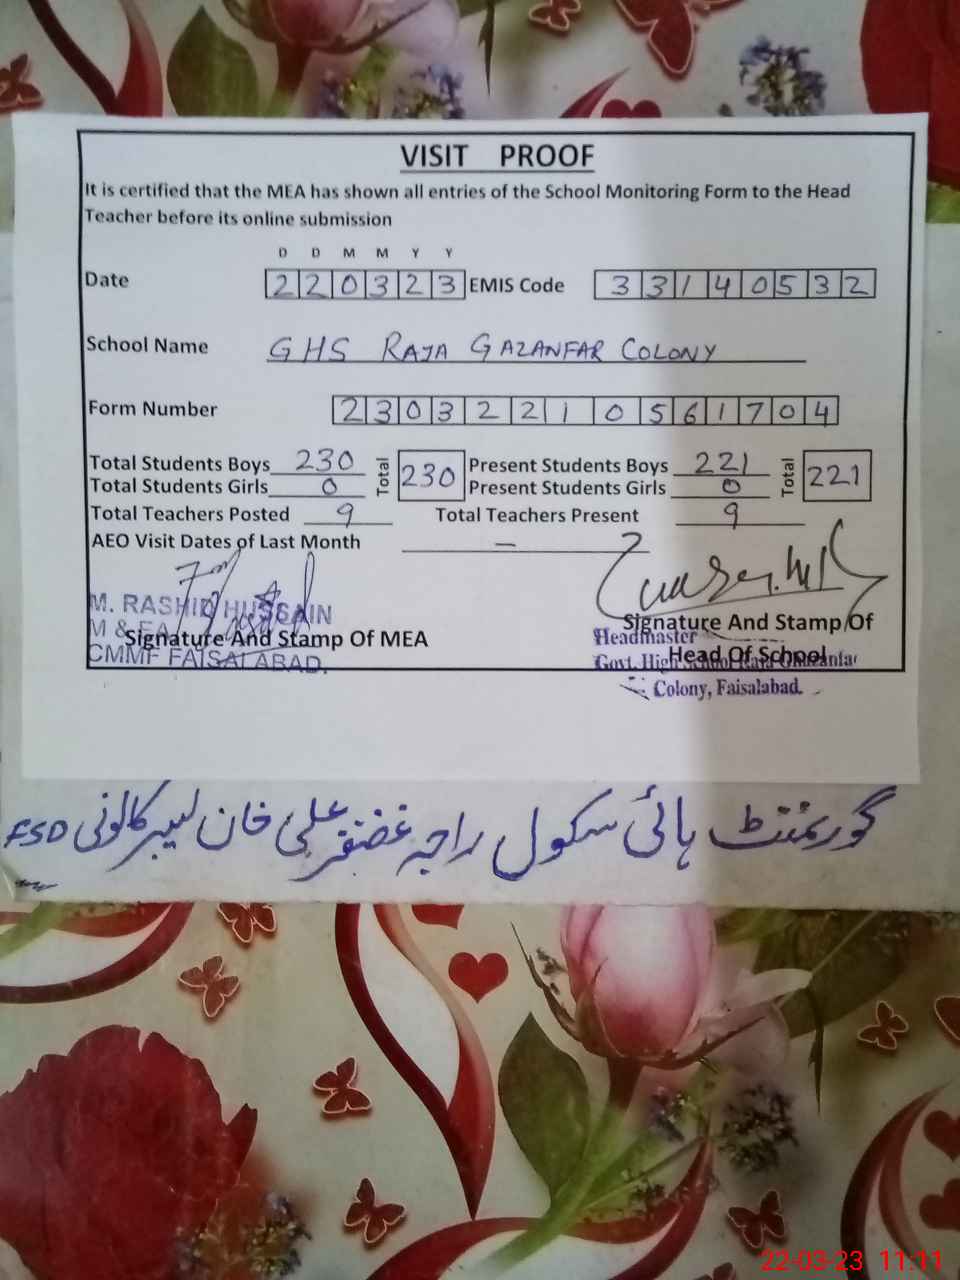 VISIT PROOF
It is certified that the MEA has shown all entries of the School Monitoring Form to the Head
Teacher before its online submission
D D M M Y Y
Date 220323 EMIS Code 33140532
School Name GHS RAJA GAZANFAR COLONY
Form Number 23032210561704
Total Students Boys 230 Total 230 Present Students Boys 221 Total 221
Total Students Girls 0 Present Students Girls 0
Total Teachers Posted 9 Total Teachers Present 9
AEO Visit Dates of Last Month –
M. RASHID HUSSAIN
M & EA
Signature And Stamp Of MEA
CMMF FAISALABAD.
Signature And Stamp Of
Headmaster
Head Of School
Govt. High School Raja Ghazanfar
Colony, Faisalabad.
گورنمنٹ ہائی سکول راجہ غضنفر علی خان لیبر کالونی FSD
22-03-23 11:11